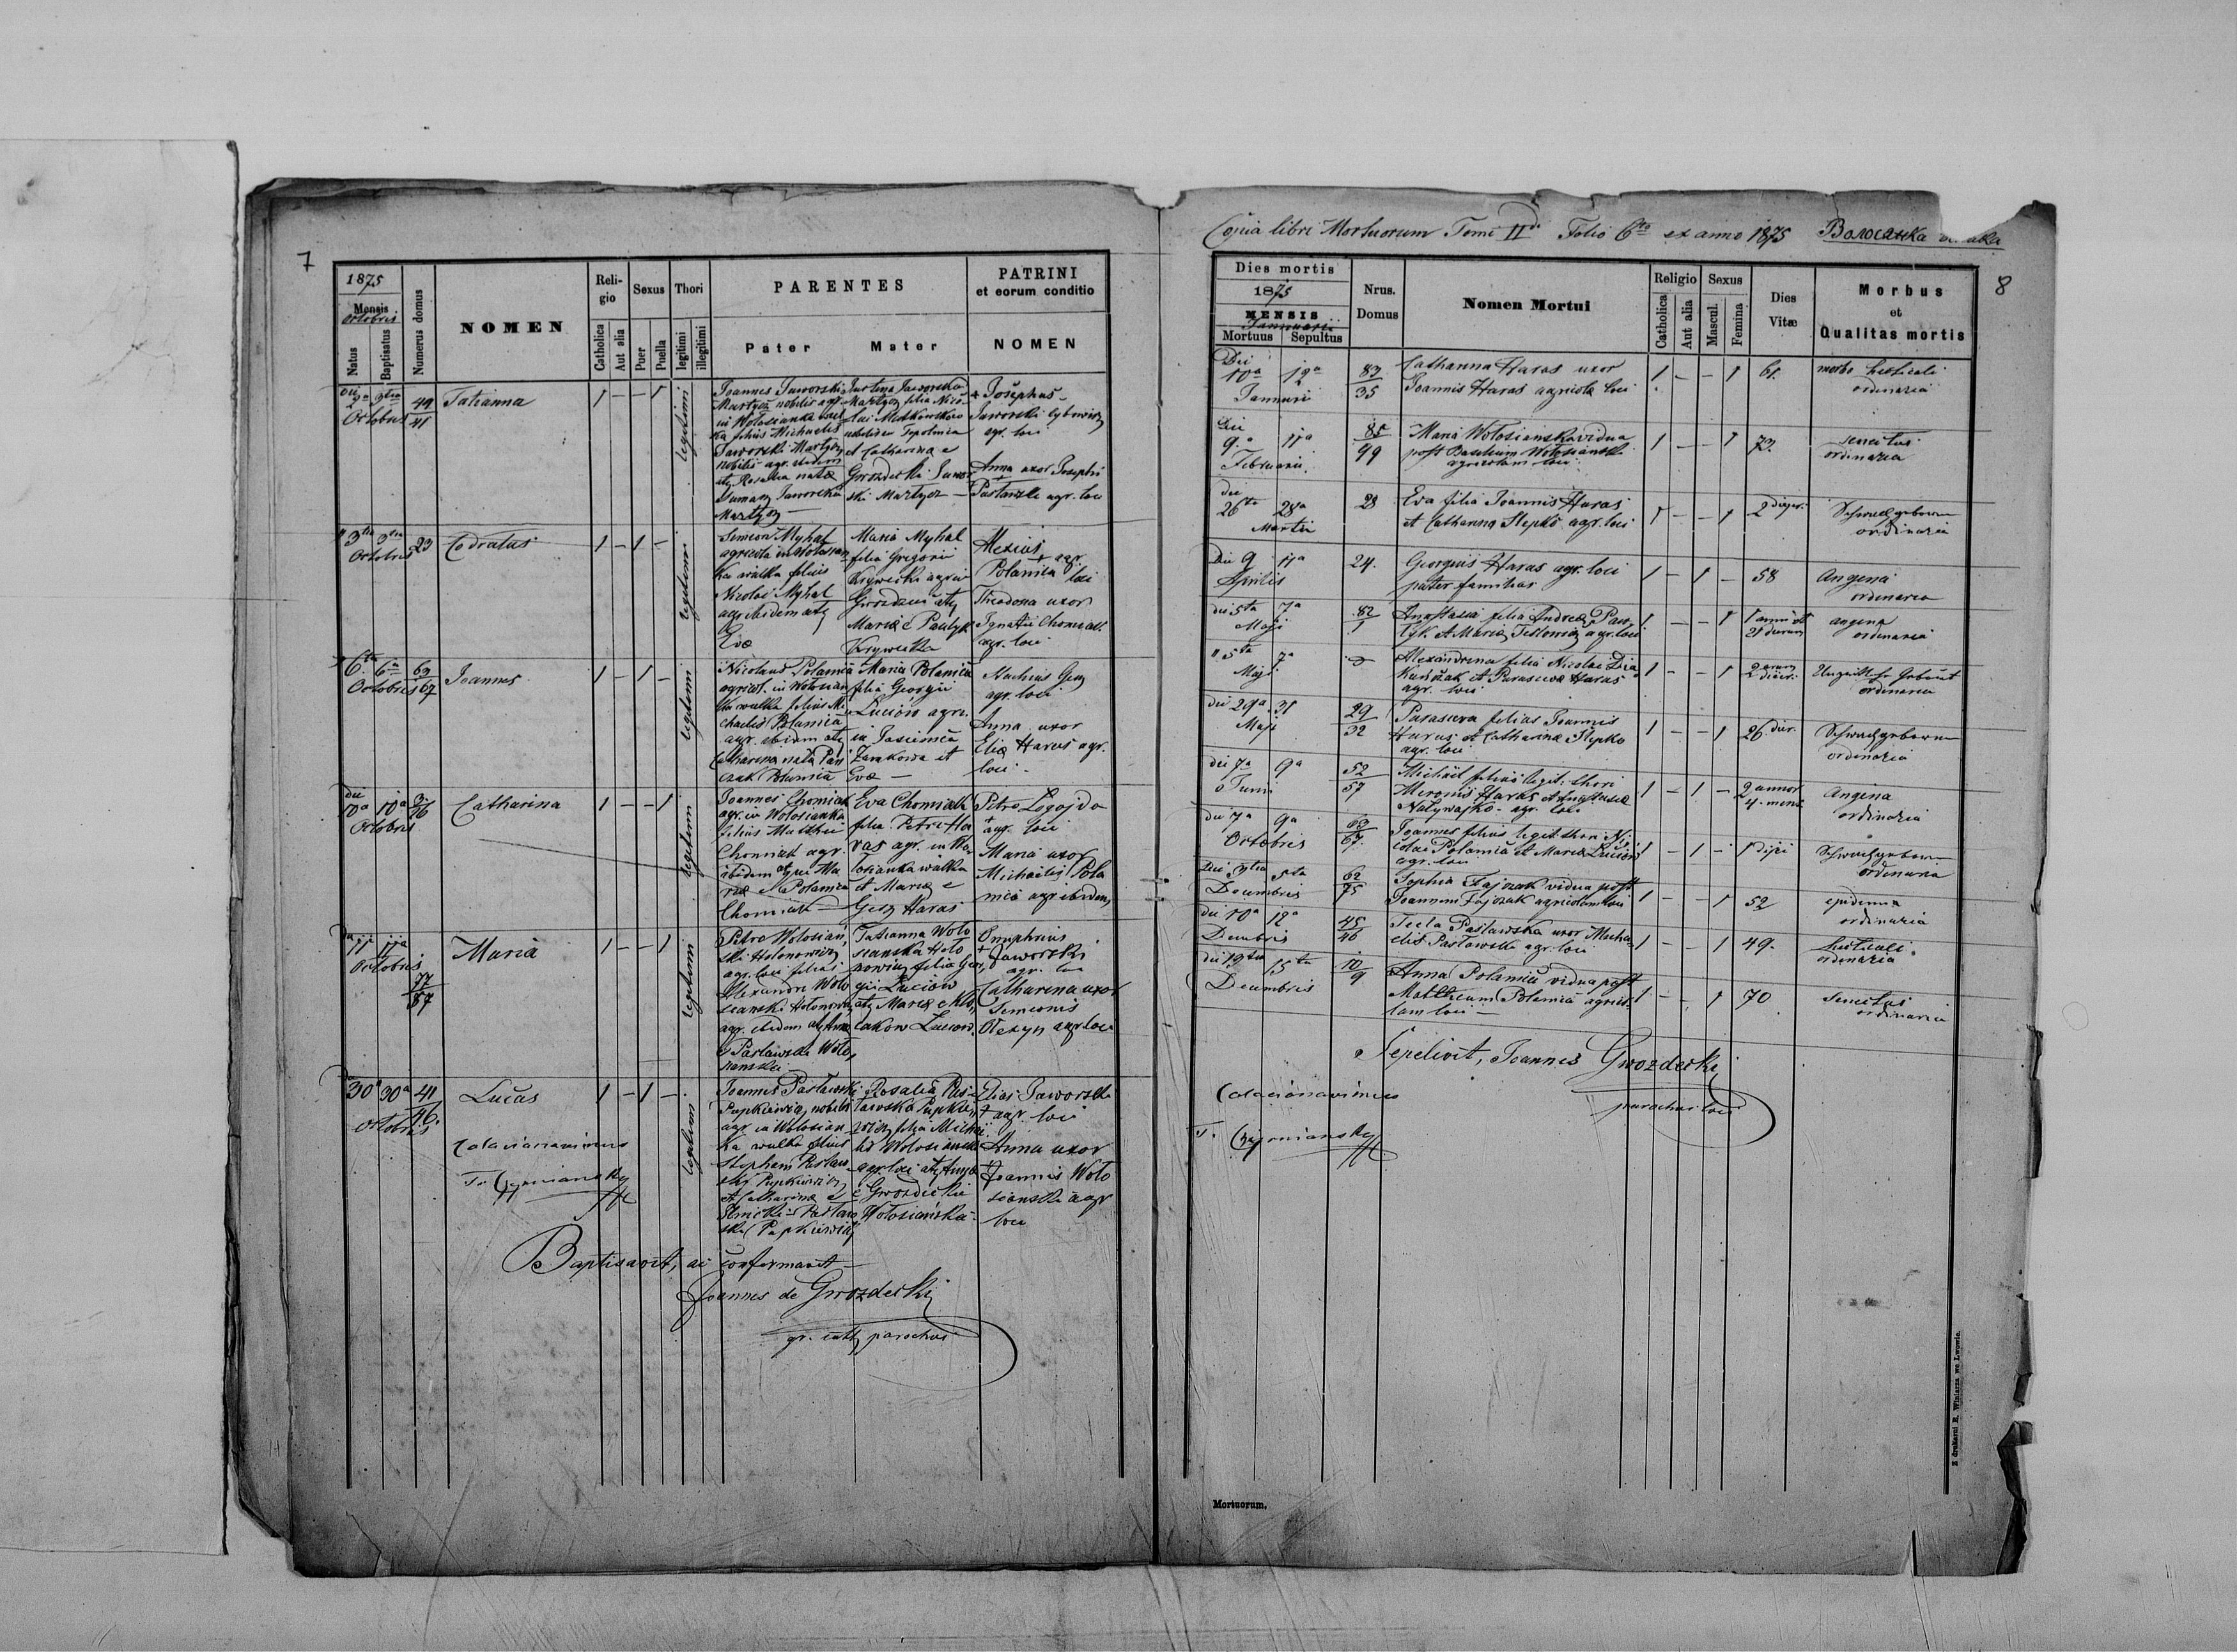 7
1875
Mensis
Octobris
Natus
Baptisatus
Numerus domus
NOMEN
Reli-
gio
Catholica
Aut alia
Sexus
Puer
Puella
Thori
legitimi
illegitimi
PARENTES
Pater
Mater
PATRINI
et eorum conditio
NOMEN
Octobris
49
41
Tatianna
1 - - 1
legitimi
Joannes Jaworski
Martycz nobilis agr.
in Wolosianka wal
ka filius Michaelis
Jaworski Martycz
nobilis agr. ibidem
atq Rosalia nata
Jaworska
Martycz
Justina Jaworska
Martycz filia Nico
lai
nobilis de Topolnica
et Catharina e
Gwozdecki Jawor
ski Martycz -
+ Josephus
Jaworski Cybowicz
agr. loci
Anna uxor Josephi
agr. loci
3tia 3tia
Octobris
23
Codratus
1 - 1 -
legitimi
Simeon Myhal
agricola in Wolosian
ka walka filius
Nicolai Myhal
agr. ibidem atq
Eva
Maria Myhal
filia Gregorii
Krywecki agricol
Maria e Pawlyk
Alexius
+ agr.
Polanica loci
Theodora uxor
Ignatii Chomiak
agr. loci
6ta 6ta
Octobris
62
67
Joannes
1 - 1 -
legitimi
Nicolaus Polamia
agricol. in Wolosian
ka walka filius Mi
chaelis Polamia
agr. ibidem atq
Catharina nata
Maria Polamia
filia Georgii
Luciow agri.
in Jasionica
Zamkowa et
Eva -
agr. loci
Anna uxor
Elia Haras agr.
loci -
die
10a 10a
Octobris
3.
76
Catharina
1 - - 1
legitimi
Joannes Chomiak
agr. in Wolosianka
filius Matthei
Chomiak agr.
ibidem atque Ma
ria e Polamia
Chomiak -
Eva Chomiak
filia Petri Ha
ras agr. in Wo
losianka walka
et Maria e
Gecz Haras
Petro Logojda
+
agr. loci
Maria uxor
Michaelis Pola
mia agr. ibidem
11a 11a
Octobris
77
87
Maria
1 - - 1
legitimi
Petro Wolosian
ski Holonowicz
agr. loci filius
Alexandri Wolo
sianski Holonowicz
agr. ibidem atq Anna
e Paslawski Wolo
sianski
Tatianna Wolo
sianska Holo
nowicz filia Geor
gii Luciow
atq Maria e
Luciow
Onuphrius
+ Jaworski
agr. loci
Catharina uxor
Simeonis
Olexyn agr. loci
30 30a
Octobris
41
46.
Lucas
1 - 1 -
legitimi
Joannes Paslawski
Pupkiewicz nobilis
agr. in Wolosian
ka walka filius
Stephani Paslaw
ski Pupkiewicz
et Catharina e
Ilnicki Paslaw
ski Pupkiewicz
Rosalia Pas
lawska Pupkie
wicz filia Micha
lis Wolosianski
agr. loci atq Anna
e Gwozdecki
Wolosianska
Elias Jaworski
+ agr. loci
Anna uxor
+
Joannis Wolo
sianski agr
loci
Colacionavimus
Baptisavit, ac confirmavit -
Joannes de Gwozdecki
gr. cath. parochus
Copia libri Mortuorum Tomi IIdi Folio 6to ex anno 1875 Волосянка
8
Dies mortis
1875
MENSIS
Januarii
Mortuus
Sepultus
Nrus.
Domus
Nomen Mortui
Religio
Catholica
Aut alia
Sexus
Mascul.
Femina
Dies
Vitæ
Morbus
et
Qualitas mortis
Die
10a 12a
Januarii
83
35
Catharina Haras uxor
Joannis Haras agricola loci
1 - - 1
61.
morbo hecticali
ordinaria
Die
9.a 11a
Februarii
85
99
Maria Wolosianska vidua
post Basilium Wolosianski
agricolam loci
1 - - 1
73.
senectus
ordinaria
die
26ta 28a
Martii
28
Eva filia Joannis Haras
et Catharina Slepko agr. loci
1 - - 1
2 dieri
Schwachgeboren
ordinaria
Die 9 11a
Aprilis
24.
Georgius Haras agr. loci
pater familias
1 - 1 -
58
Angina
ordinaria
die 5ta 7a
Maji
82
1
Anastasia filia Andrea Paw
lyk et Maria agr. loci
1 - - 1
1 anni et
21 dierum
angina
ordinaria
" 5ta 7a
Maji
Alexandrina filia Nicolai Dia
kunczak et Parasceva Haras
agr. loci
1 - - 1
2 dieri
ordinaria
die 29a 31
Maji
29
32
Parasceva filias Joannis
Haras et Catharina Slepko
agr. loci
1 - - 1
26. dier.
Schwachgeboren
ordinaria
die 7a 9a
Junii
52
57
Michael filius legit. thori
Mironis Haras et Anastasia
Nalywajko - agr. loci
1 - 1 -
2 annor
4. mens.
Angina
ordinaria
die 7a 9a
Octobris
62
67.
Joannes filius legit. thori Ni
colai Polamia et Maria Luciow
agr. loci
1 - 1 -
1 diei
Schwachgeboren
ordinaria
Die 3tia 5ta
Decembris
62
75
Sophia Fajczak vidua post
Joannem Fajczak agricolam loci
1 - - 1
52
epidemia
ordinaria
die 10a 12a
Decembris
45
46
Tecla Paslawska uxor Micha
elis Paslawski agr. loci
1 - - 1
49.
hecticali
ordinaria
die 13tia 15ta
Decembris
10
9
Anna Polamia vidua post
Mattheum Polamia agrico
lam loci -
1 - - 1
70
Senectus
ordinaria
Sepelivit, Joannes Gwozdecki
parochus loci
Colacionavimus
Mortuorum.
Z drukarni E. Winiarza we Lwowie.